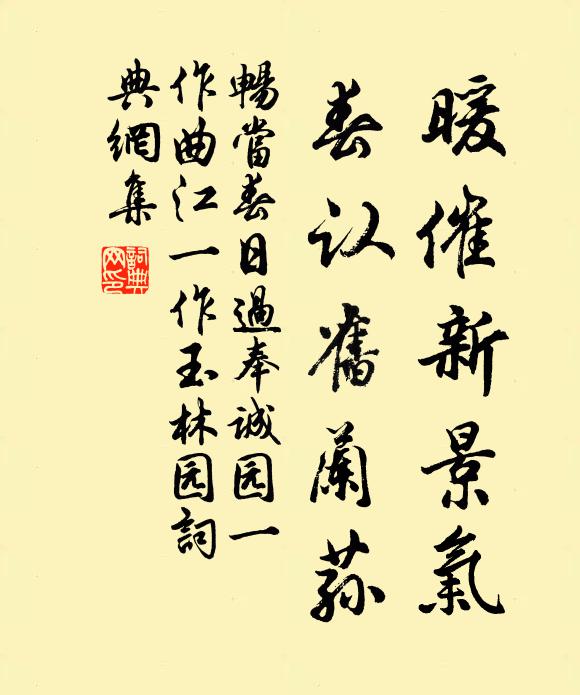 暖催新景氣
春认舊蘭蓀
暢當春日過奉诚园一
作曲江一作玉林园詞
典網集
詞典
网印